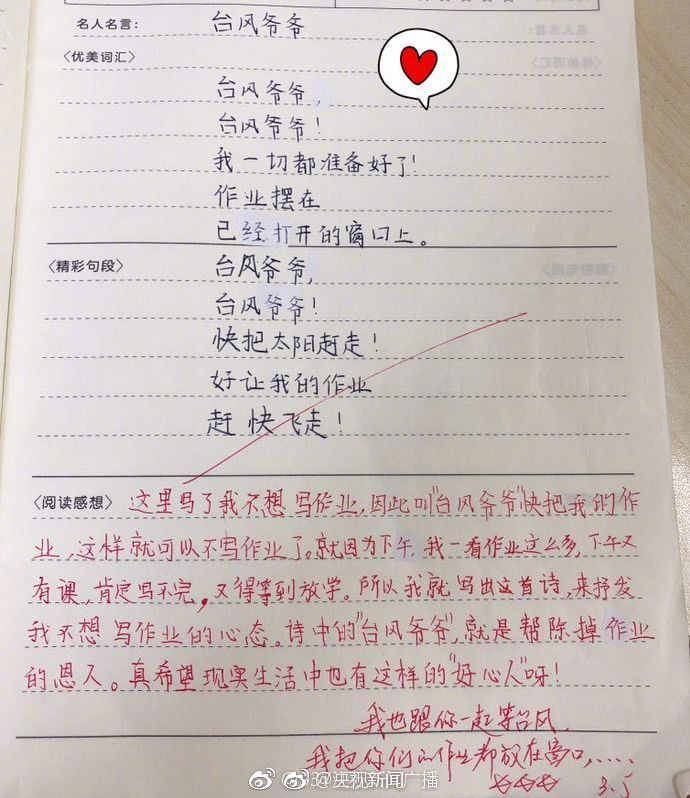 名人名言: 台风爷爷
〈优美词汇〉
台风爷爷,
台风爷爷!
我一切都准备好了!
作业摆在
已经打开的窗口上。
〈精彩句段〉 台风爷爷,
台风爷爷!
快把太阳赶走!
好让我的作业
赶快飞走!
〈阅读感想〉 这里写了我不想写作业,因此叫"台风爷爷"快把我们作
业,这样就可以不写作业了。就因为下午,我一看作业这么多,下午又
有课,肯定写不完,又得等到放学。所以我就写出这首诗,来抒发
我不想写作业的心态。诗中的"台风爷爷",就是帮除掉作业
的恩人。真希望现实生活中也有这样的"好心人"呀!
我也跟你一起等台风,
我把你们的作业都放在窗口,.....
☆☆☆ 3.5
@央视新闻广播